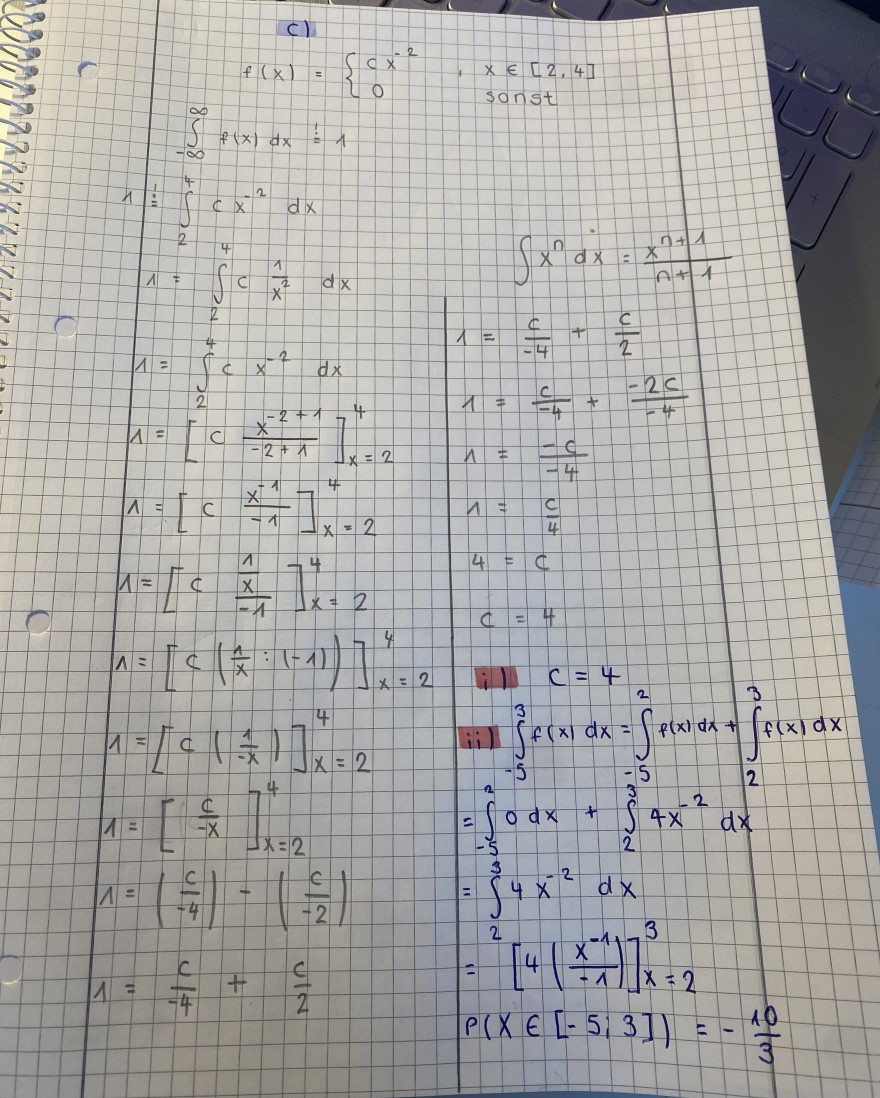 c)
f(x) = { cx⁻² , x ∈ [2, 4]
0 sonst
∫_{-∞}^{∞} f(x) dx ≟ 1
1 ≟ ∫_{2}^{4} c x⁻² dx
1 = ∫_{2}^{4} c 1/x² dx
1 = ∫_{2}^{4} c x⁻² dx
1 = [ c x^{-2+1}/(-2+1) ]_{x=2}^{4}
1 = [ c x⁻¹/-1 ]_{x=2}^{4}
1 = [ c (1/x)/-1 ]_{x=2}^{4}
1 = [ c ( 1/x : (-1) ) ]_{x=2}^{4}
1 = [ c ( 1/-x ) ]_{x=2}^{4}
1 = [ c/-x ]_{x=2}^{4}
1 = ( c/-4 ) - ( c/-2 )
1 = c/-4 + c/2
∫ xⁿ dx = x^{n+1}/(n+1)
1 = c/-4 + c/2
1 = c/-4 + -2c/-4
1 = -c/-4
1 = c/4
4 = c
c = 4
i) c = 4
ii) ∫_{-5}^{3} f(x) dx = ∫_{-5}^{2} f(x) dx + ∫_{2}^{3} f(x) dx
= ∫_{-5}^{2} 0 dx + ∫_{2}^{3} 4x⁻² dx
= ∫_{2}^{3} 4 x⁻² dx
= [ 4 ( x⁻¹/-1 ) ]_{x=2}^{3}
P(X ∈ [-5; 3]) = - 10/3